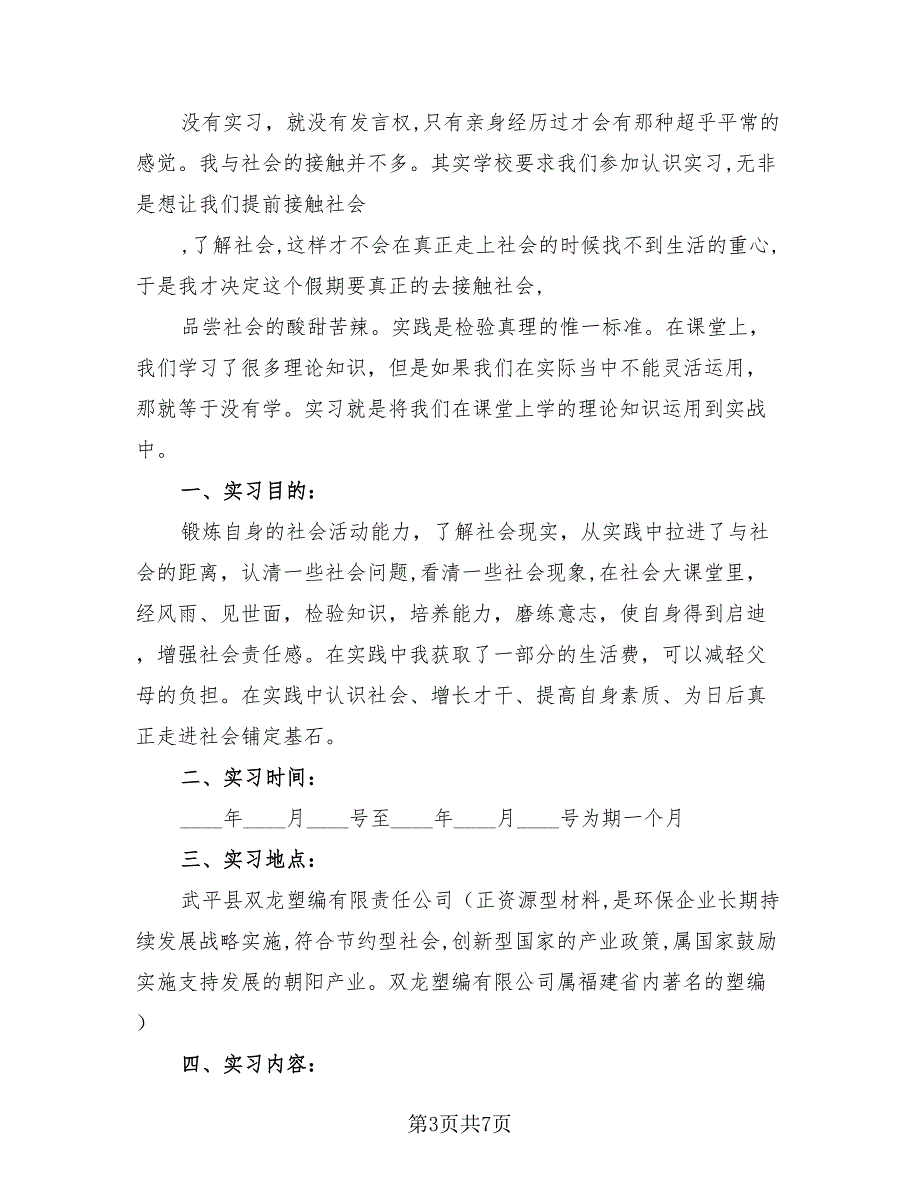 没有实习，就没有发言权,只有亲身经历过才会有那种超乎平常的
感觉。我与社会的接触并不多。其实学校要求我们参加认识实习,无非
是想让我们提前接触社会
,了解社会,这样才不会在真正走上社会的时候找不到生活的重心,
于是我才决定这个假期要真正的去接触社会,
品尝社会的酸甜苦辣。实践是检验真理的惟一标准。在课堂上，
我们学习了很多理论知识，但是如果我们在实际当中不能灵活运用，
那就等于没有学。实习就是将我们在课堂上学的理论知识运用到实战
中。
一、实习目的：
锻炼自身的社会活动能力，了解社会现实，从实践中拉进了与社
会的距离，认清一些社会问题,看清一些社会现象,在社会大课堂里，
经风雨、见世面，检验知识，培养能力，磨练意志，使自身得到启迪
，增强社会责任感。在实践中我获取了一部分的生活费，可以减轻父
母的负担。在实践中认识社会、增长才干、提高自身素质、为日后真
正走进社会铺定基石。
二、实习时间：
____年____月____号至____年____月____号为期一个月
三、实习地点：
武平县双龙塑编有限责任公司（正资源型材料,是环保企业长期持
续发展战略实施,符合节约型社会,创新型国家的产业政策,属国家鼓励
实施支持发展的朝阳产业。双龙塑编有限公司属福建省内著名的塑编
）
四、实习内容：
第3页共7页